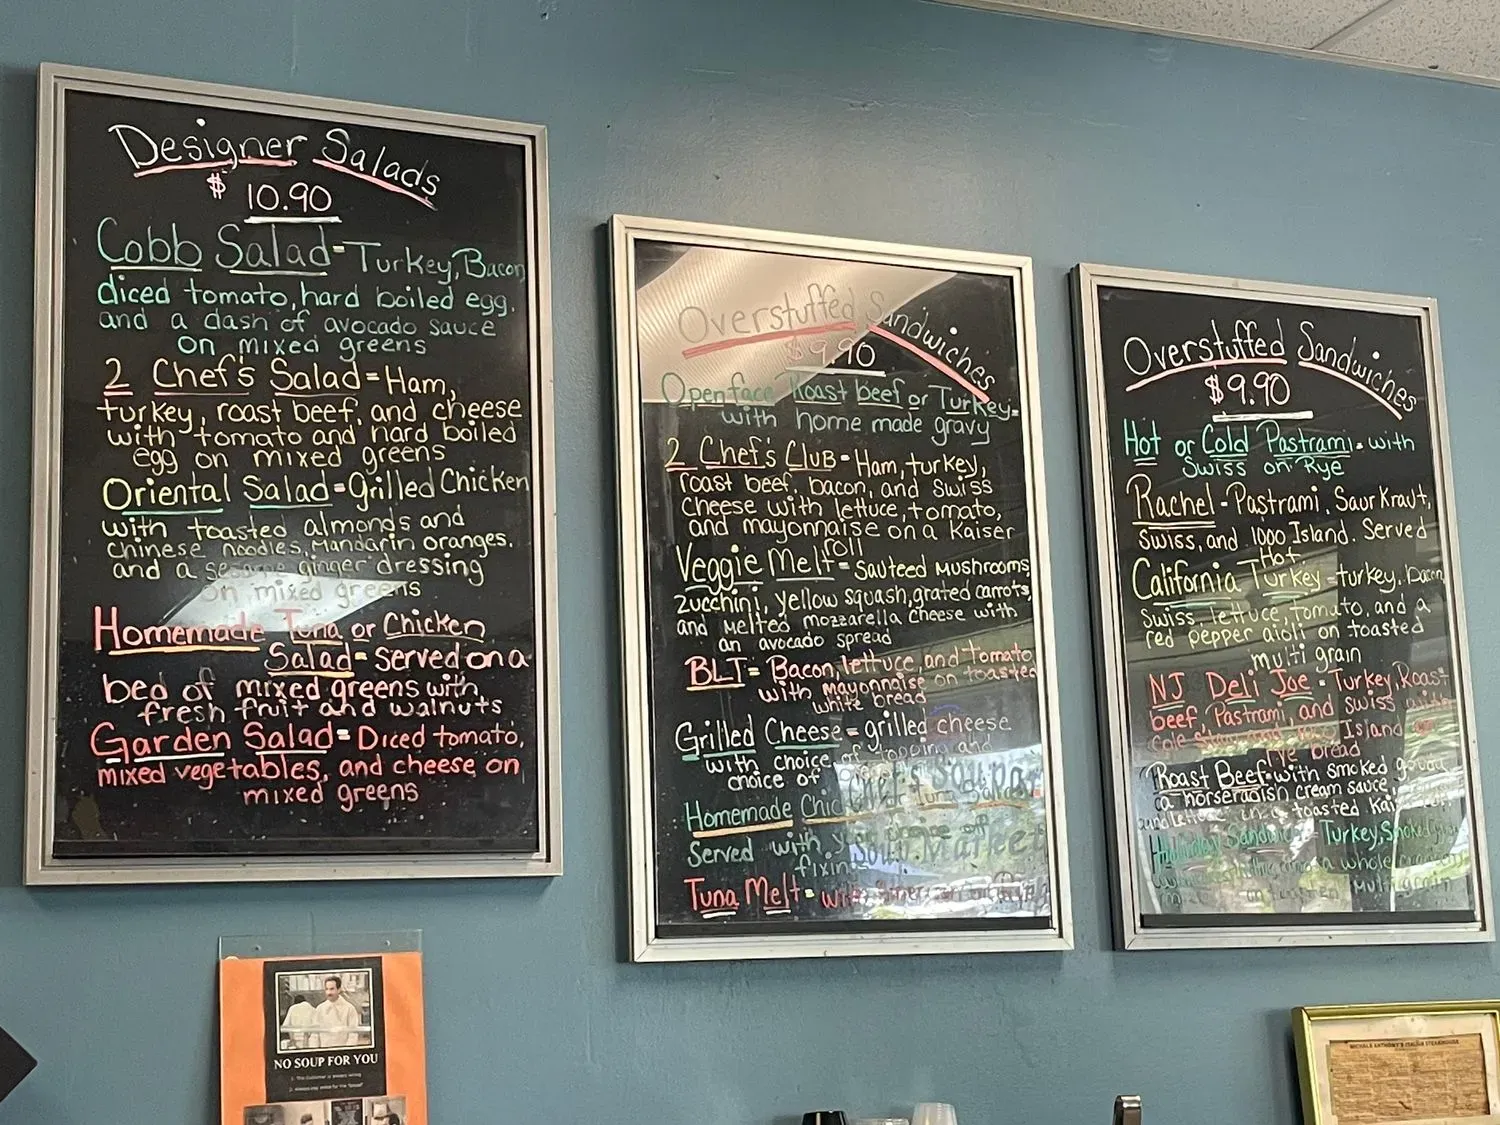 Designer Salads
$ 10.90
Cobb Salad = Turkey, Bacon
diced tomato, hard boiled egg,
and a dash of avocado sauce
on mixed greens
2 Chef's Salad = Ham,
turkey, roast beef, and cheese
with tomato and hard boiled
egg on mixed greens
Oriental Salad = Grilled Chicken
with toasted almonds and
chinese noodles, Mandarin oranges,
and a sesame ginger dressing
on mixed greens
Homemade Tuna or Chicken
Salad = served on a
bed of mixed greens with
fresh fruit and walnuts
Garden Salad = Diced tomato,
mixed vegetables, and cheese on
mixed greens
Overstuffed Sandwiches
$9.90
Openface Roast beef or Turkey =
with home made gravy
2 Chef's Club = Ham, turkey,
roast beef, bacon, and Swiss
cheese with lettuce, tomato,
and mayonnaise on a Kaiser
roll
Veggie Melt = Sauteed Mushrooms,
zucchini, yellow squash, grated carrots,
and melted mozzarella cheese with
an avocado spread
BLT = Bacon, lettuce, and tomato
with mayonnaise on toasted
white bread
Grilled Cheese = grilled cheese
with choice of topping and
choice of
Homemade
Served with your choice of
Tuna Melt =
Overstuffed Sandwiches
$9.90
Hot or Cold Pastrami = with
Swiss on Rye
Rachel - Pastrami, Saurkraut,
Swiss, and 1000 Island. Served
Hot
California Turkey = turkey, bacon
Swiss, lettuce, tomato, and a
red pepper aioli on toasted
multi grain
NJ Deli Joe - Turkey, Roast
beef, Pastrami, and Swiss with
cole Island on
rye bread
Roast Beef - with smoked gouda
a horseradish cream sauce,
toasted
Turkey, Smoked
NO SOUP FOR YOU
MICHALE ANTHONY'S ITALIAN STEAKHOUSE